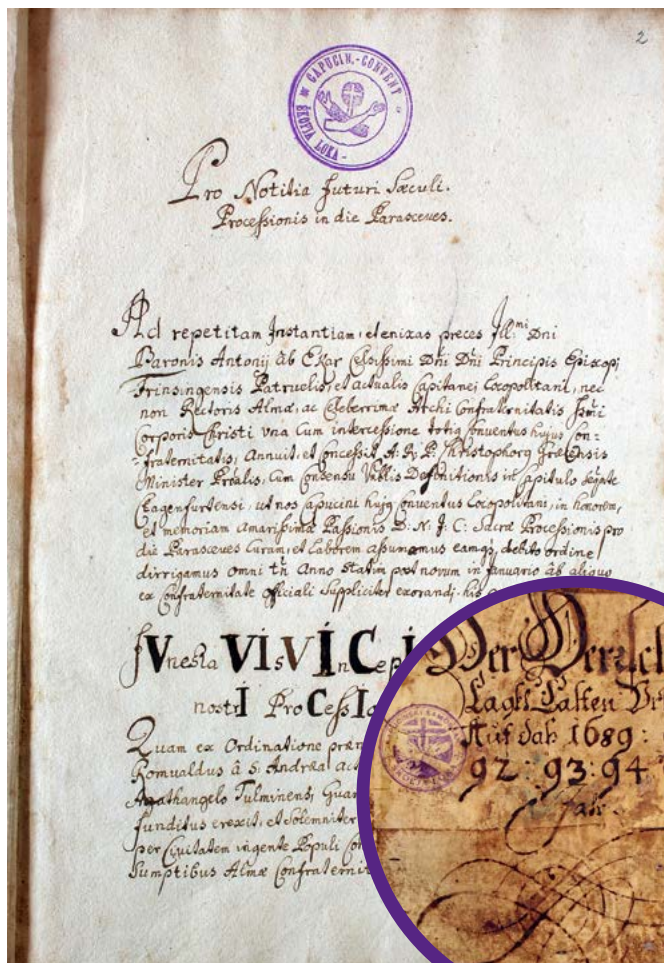 2
CAPUCIN.-CONVENT
ŠKOFJA LOKA
Pro Notitia futuri Sæculi.
Processionis in die Parasceves.
Ad repetitam Instantiam, et enixas preces Ill:mi Dni
Baronis Antonij ab Ekar Celsissimi Dni Dni Principis Episcopi
Frinsingensis Patruelis, et actualis Capitanei Locopolitani, nec
non Rectoris Almæ, ac Celeberrimæ Archi Confraternitatis SSmi
Corporis Christi vna cum intercessione totig Conventus hujus Con-
-fraternitatis, Annuit, et Concessit A: R: P: Christophorg Græcensis
Minister Proälis, cum consensu Vnblis Definitionis in Capitulo
Clagenfurtensi, ut nos Capucini hujg Conventus Locopolitani, in honorem,
et memoriam Amarissimæ Passionis D: N: J: C: Sacræ Processionis pro
die Parasceves Curam, et Laborem assumamus eamq3 debito ordine
dirrigamus omni tñ Anno statim post novum in Januario ab aliquo
ex Confraternitate Officiali Suppliciter exorandj. his
fVnesta VIsVInCep
nostrI ProCessIo
Quam ex Ordinatione præn
Romualdus â S: Andrea act
Agathangelo Tulminens, Guar
funditus erexit, et Solemniter
per Civitatem ingente Populi Con
Sumptibus Almæ Confraternit
Auf dab 1689:
92: 93: 94
Jah